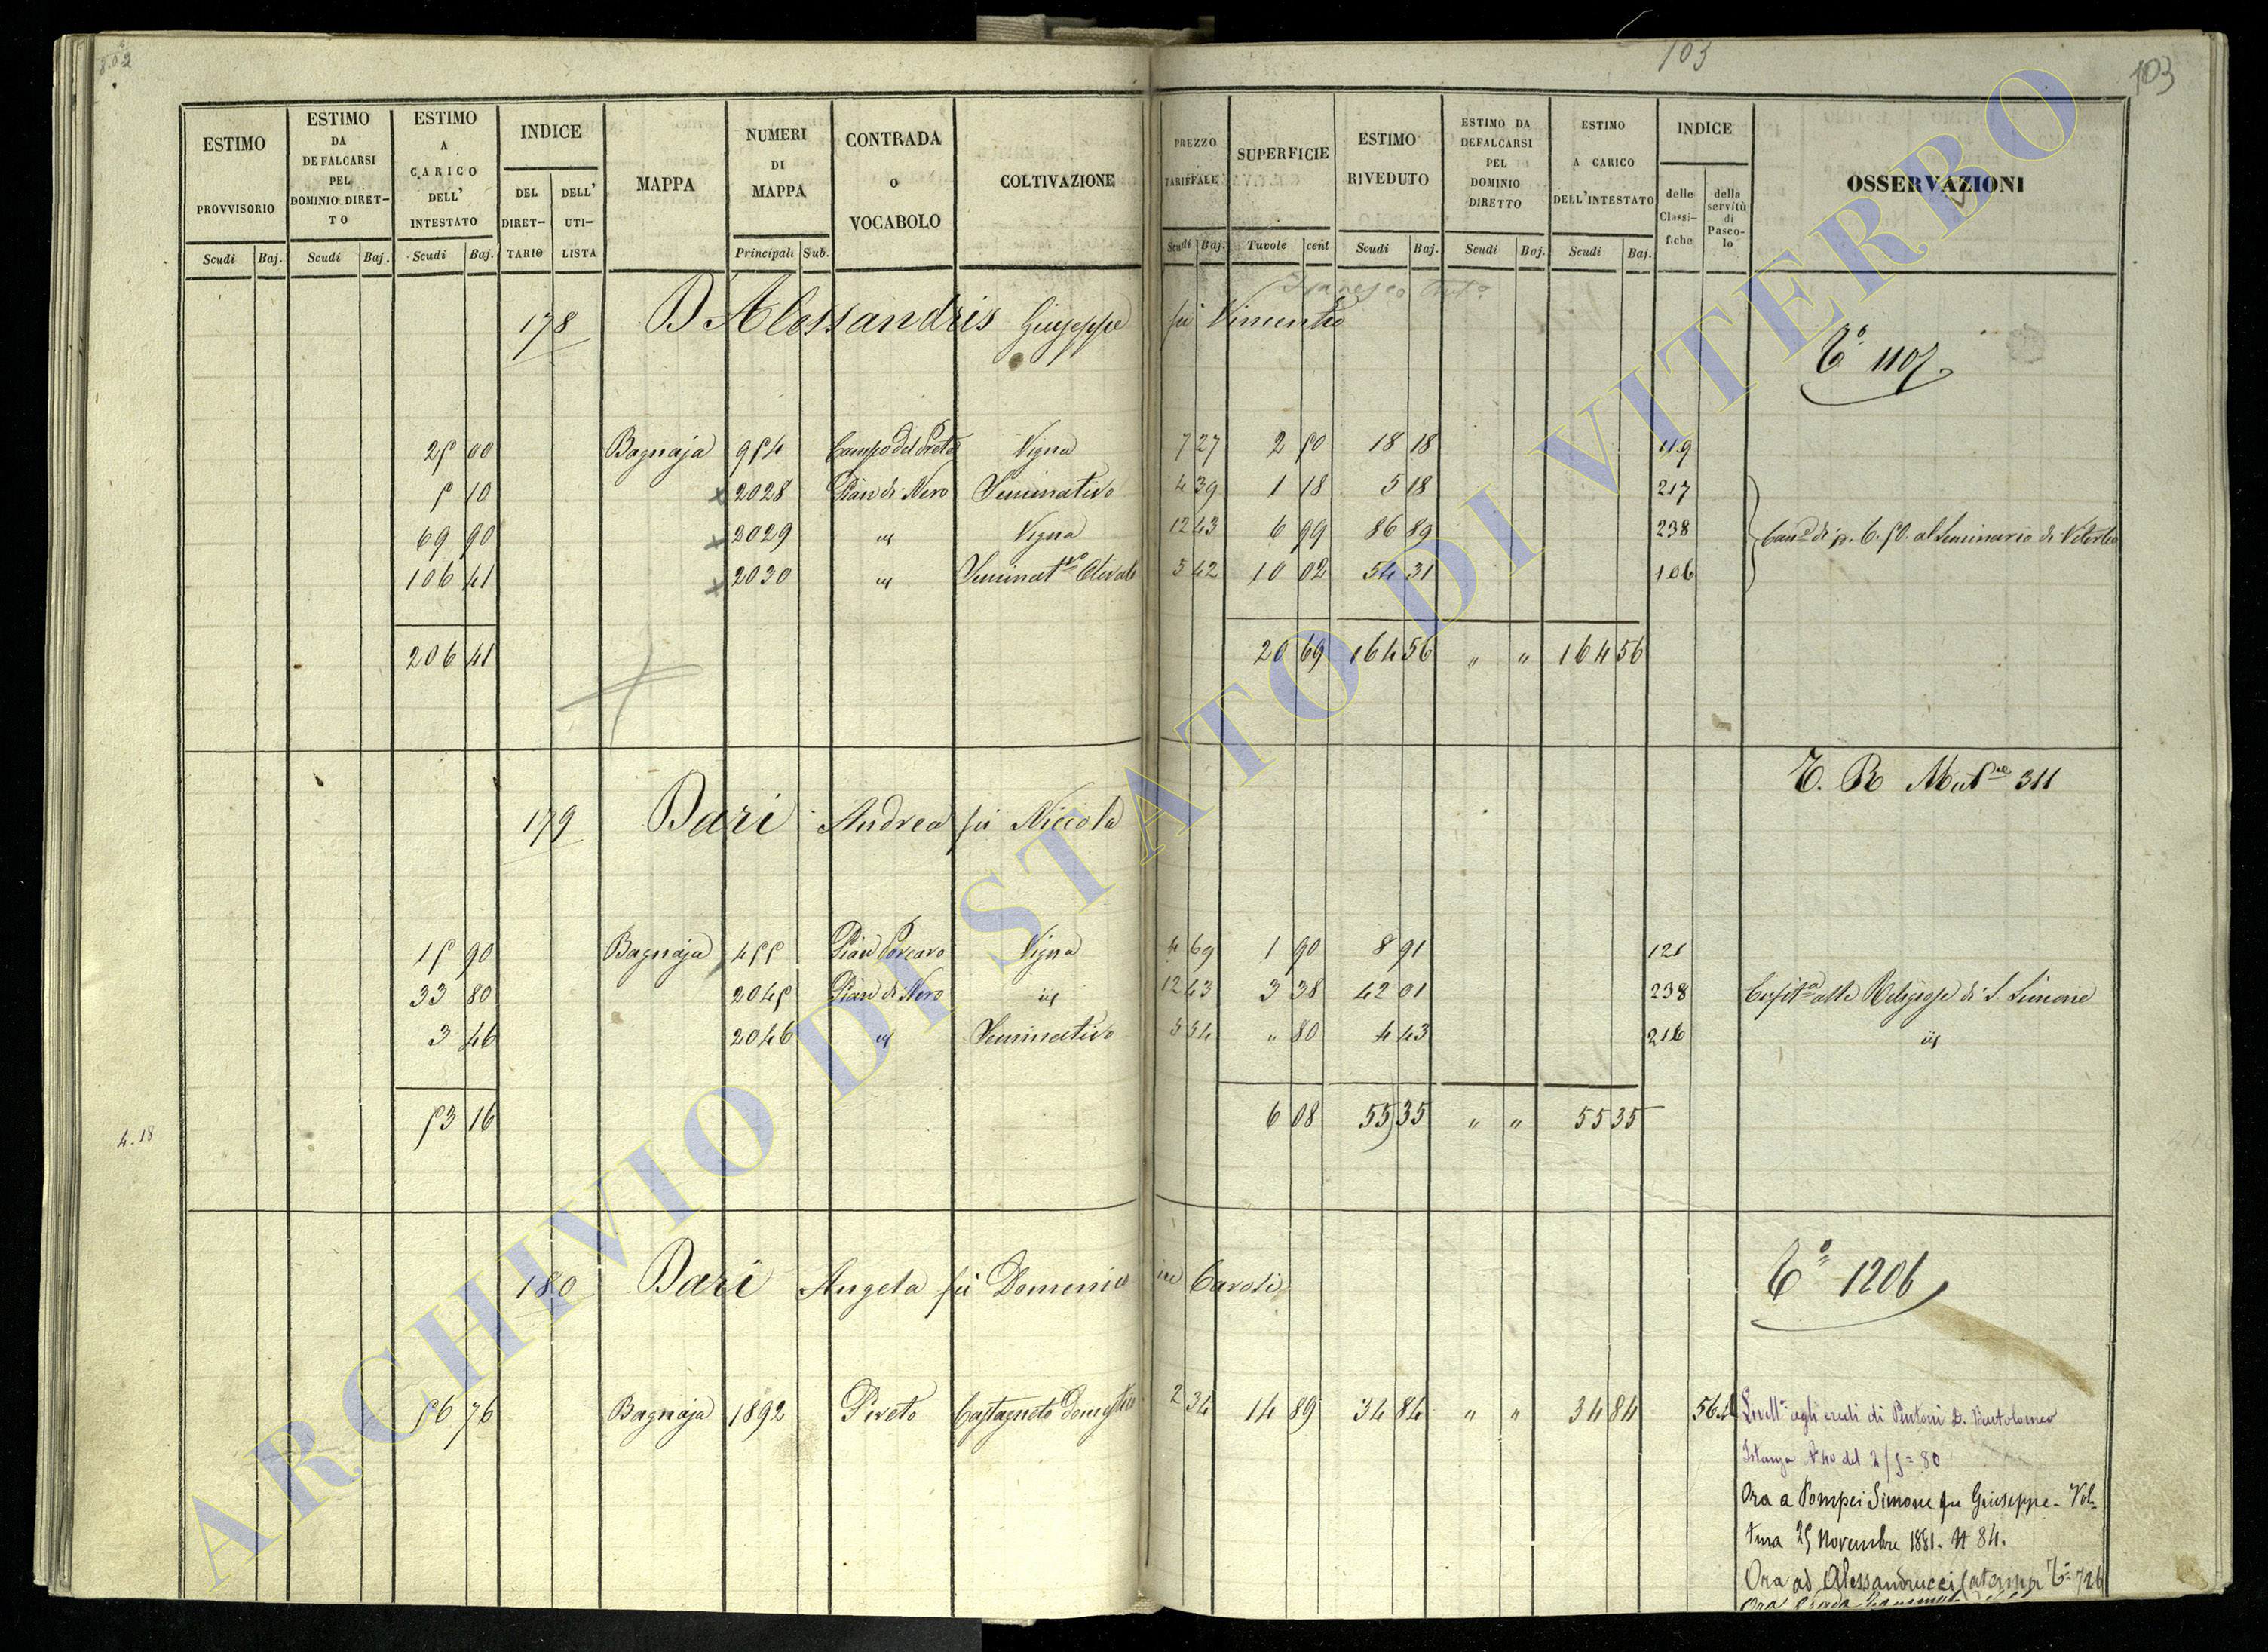 8.02
103
103
ESTIMO PROVVISORIO Scudi Baj.
ESTIMO DA DEFALCARSI PEL DOMINIO DIRETTO Scudi Baj.
ESTIMO A CARICO DELL' INTESTATO Scudi Baj.
INDICE DEL DIRETTARIO DELL' UTILISTA
MAPPA
NUMERI DI MAPPA Principali Sub.
CONTRADA o VOCABOLO
COLTIVAZIONE
PREZZO TARIFFALE Scudi Baj.
SUPERFICIE Tavole cent
ESTIMO RIVEDUTO Scudi Baj.
ESTIMO DA DEFALCARSI PEL DOMINIO DIRETTO Scudi Baj.
ESTIMO A CARICO DELL'INTESTATO Scudi Baj.
INDICE delle Classifiche della servitù di Pascolo
OSSERVAZIONI
178 D'Alessandris Giuseppe fù Vincenzo
Tº 1107
25 00 Bagnaja 954 Campo del Prete Vigna 7 27 2 50 18 18 119
5 10 x 2028 Pian di Nero Seminativo 4 39 1 18 5 18 217
69 90 x 2029 id Vigna 12 43 6 99 86 89 238 al Seminario di Viterbo
106 41 x 2030 id Seminatvo Olivato 5 42 10 02 54 31 106
206 41 20 69 164 56 " " 164 56
T. R Mutne 311
179 Dari Andrea fù Niccola
15 90 Bagnaja 455 Pian Porcaro Vigna 4 69 1 90 8 91 121
33 80 2045 Pian di Nero id 12 43 3 38 42 01 238 alle Religiose di S. Simone
3 46 2046 id Seminativo 5 54 " 80 4 43 216 id
53 16 6 08 55 35 " " 55 35
4.18
180 Dari Angela fù Domenico in Carosi
Tº 1206
56 76 Bagnaja 1892 Pireto Castagneto Domestico 2 34 14 89 34 84 " " 34 84 564 agli eredi di D. Bartolomeo
Istanza Nº 40 del 2/5=80
Ora a Pompei Simone fu Giuseppe - Vol-
tura 25 Novembre 1881. N 84.
Ora ad Alessandrucci Tº 726
ARCHIVIO DI STATO DI VITERBO